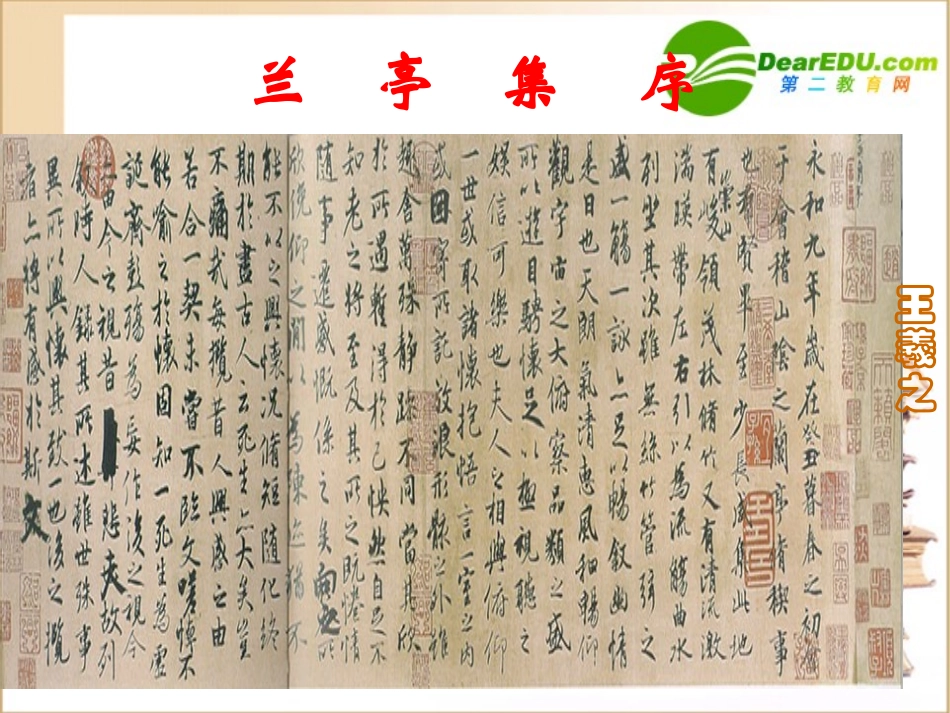 兰亭集序
DearEDU.com
第二教育网
王羲之
永和九年歲在癸丑暮春之初會
于會稽山陰之蘭亭脩稧事
也羣賢畢至少長咸集此地
有崇山峻領茂林脩竹又有清流激
湍暎帶左右引以為流觴曲水
列坐其次雖無絲竹管弦之
盛一觴一詠亦足以暢敘幽情
是日也天朗氣清惠風和暢仰
觀宇宙之大俯察品類之盛
所以遊目騁懷足以極視聽之
娛信可樂也夫人之相與俯仰
一世或取諸懷抱悟言一室之內
或因寄所託放浪形骸之外雖
趣舍萬殊靜躁不同當其欣
於所遇暫得於己怏然自足不
知老之將至及其所之既惓情
隨事遷感慨係之矣向之所
欣俛仰之閒以為陳迹猶不
能不以之興懷況脩短隨化終
期於盡古人云死生亦大矣豈
不痛哉每攬昔人興感之由
若合一契未嘗不臨文嗟悼不
能喻之於懷固知一死生為虛
誕齊彭殤為妄作後之視今
亦由今之視昔悲夫故列
敘時人錄其所述雖世殊事
異所以興懷其致一也後之攬
者亦將有感於斯文